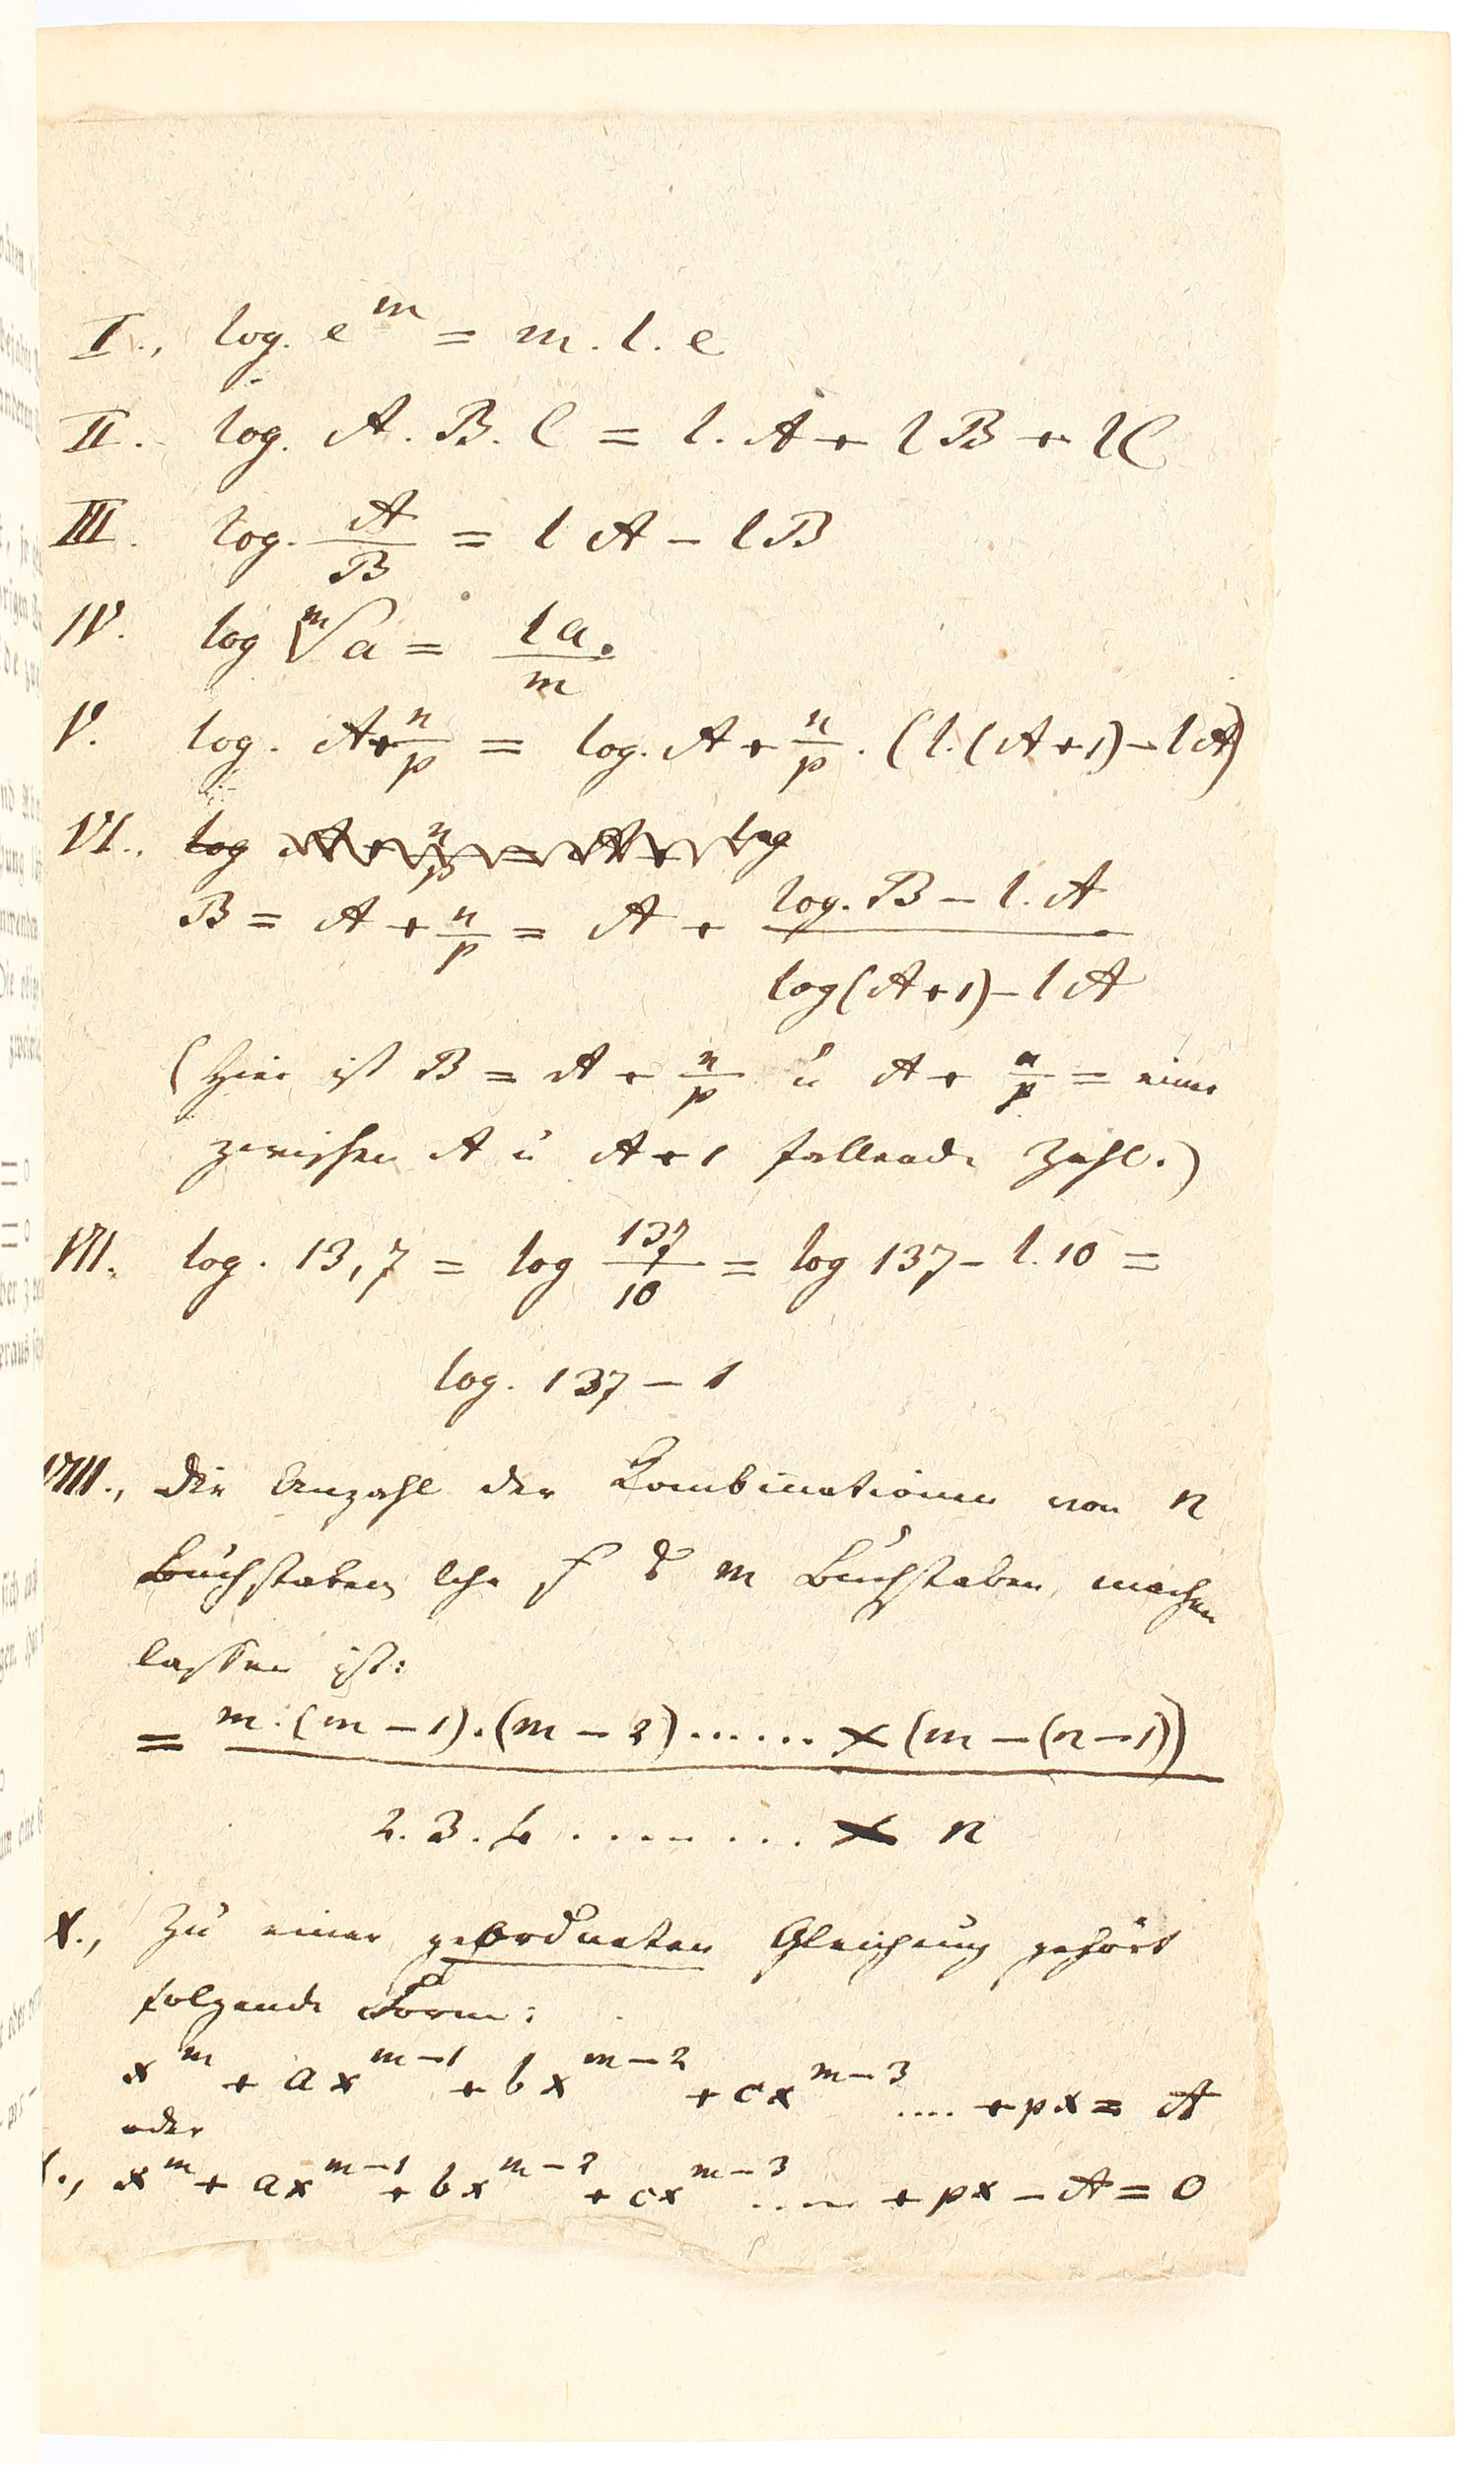 I., log. e^m = m. l. e
II. log. A. B. C = l. A + l B + l C
III. log. A/B = l A − l B
IV. log ᵐ√a = l a./m
V. log. A+n/p = log. A + n/p . (l. (A+1) − l A)
VI., log A + n/p = A + log
B = A + n/p = A + (log. B − l. A)/(log (A+1) − l A)
(Hier ist B = A + n/p u A + n/p = eine
zwischen A u A+1 fallende Zahl.)
VII. log. 13,7 = log 137/10 = log 137 − l. 10 =
log. 137 − 1
VIII., Die Anzahl der Kombinationen von n
Buchstaben m Buchstaben machen
lassen ist:
= m.(m − 1).(m − 2) ...... × (m − (n − 1))
2. 3. 4 ........ × n
X., Zu einer geordneten Gleichung gehört
folgende Form:
x^m + ax^(m−1) + bx^(m−2) + cx^(m−3) .... + px = A
oder
., x^m + ax^(m−1) + bx^(m−2) + cx^(m−3) ..... + px − A = 0